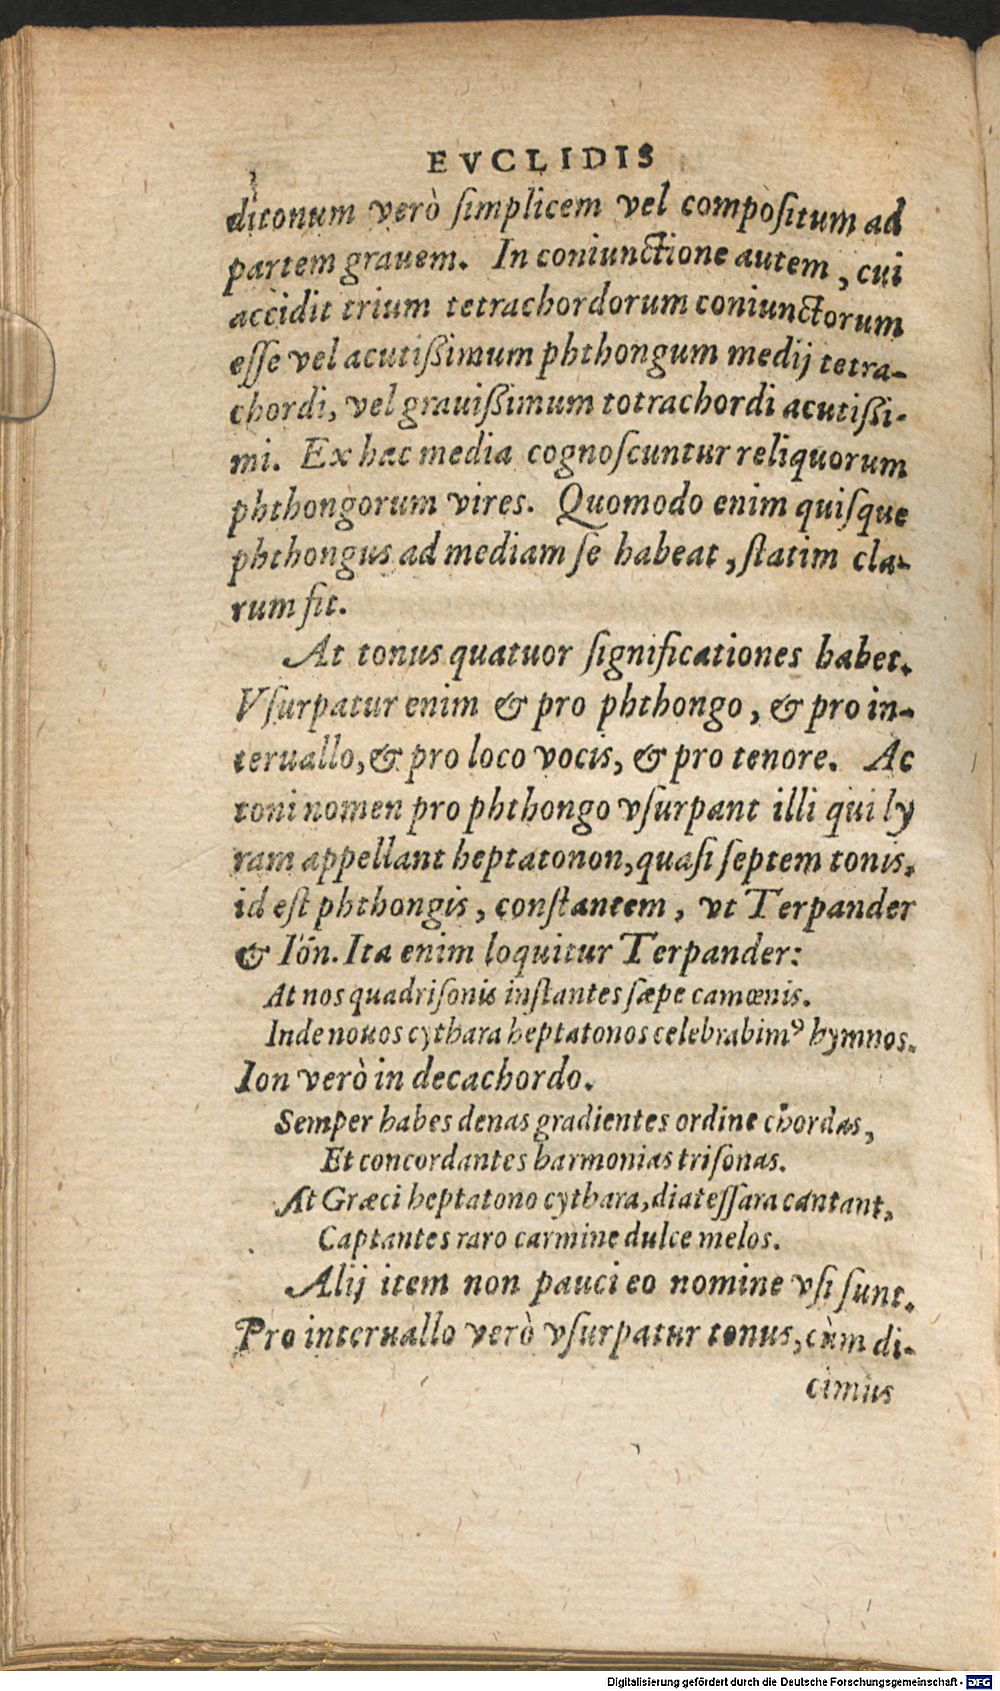 EVCLIDIS
ditonum verò ſimplicem vel compoſitum ad
partem grauem. In coniunctione autem, cui
accidit trium tetrachordorum coniunctorum
eſſe vel acutißimum phthongum medij tetra-
chordi, vel grauißimum totrachordi acutißi-
mi. Ex hac media cognoſcuntur reliquorum
phthongorum vires. Quomodo enim quiſque
phthongus ad mediam ſe habeat, ſtatim cla-
rum fit.
At tonus quatuor ſignificationes habet.
Vſurpatur enim & pro phthongo, & pro in-
teruallo, & pro loco vocis, & pro tenore. Ac
toni nomen pro phthongo vſurpant illi qui ly
ram appellant heptatonon, quaſi ſeptem tonis,
id eſt phthongis, conſtantem, vt Terpander
& Iön. Ita enim loquitur Terpander:
At nos quadriſonis inſtantes ſæpe camœnis.
Inde nouos cythara heptatonos celebrabimꝰ hymnos.
Ion verò in decachordo.
Semper habes denas gradientes ordine chordas,
Et concordantes harmonias triſonas.
At Græci heptatono cythara, diateſſara cantant,
Captantes raro carmine dulce melos.
Alij item non pauci eo nomine vſi ſunt.
Pro interuallo verò vſurpatur tonus, cùm di-
cimus
Digitalisierung gefördert durch die Deutsche Forschungsgemeinschaft - DFG